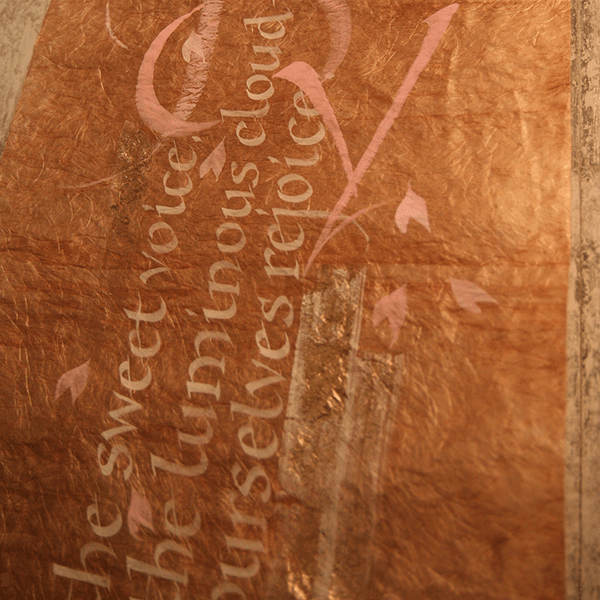 he sweet voice,
he luminous cloud-
ourselves rejoice